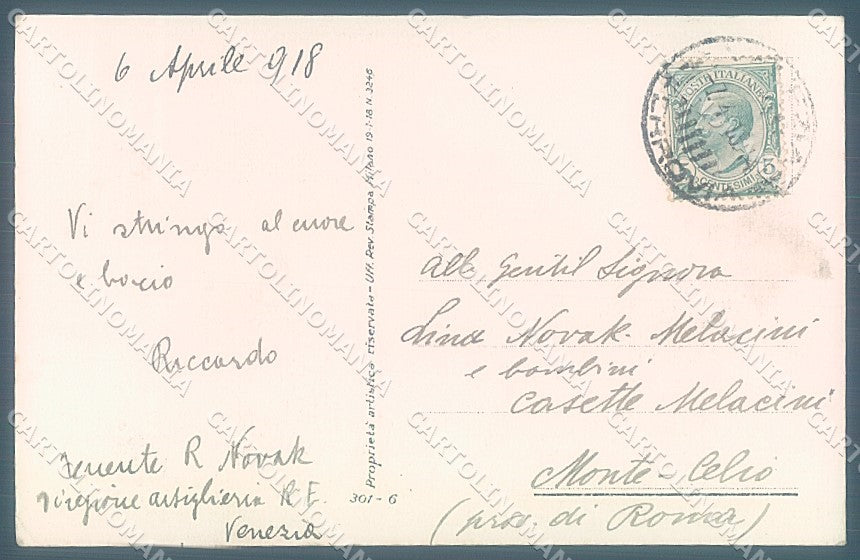 6 Aprile 918
Vi stringo al cuore
e bacio
Riccardo
tenente R Novak
direzione artiglieria R.F.
Venezia
Proprietà artistica riservata - Uff. Rev. Stampa Milano 19-1-18 N. 3246
301-6
POSTE ITALIANE
CENTESIMI 5
Alla Gentil Signora
Lina Novak-Melacini
e bambini
Casette Melacini
Monte-Celio
(prov. di Roma)
CARTOLINOMANIA